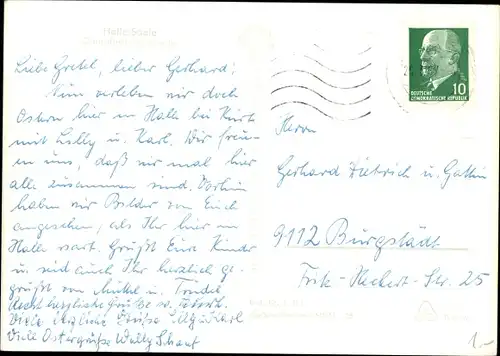 Halle/Saale
Liebe Gretel, lieber Gerhard!
Nun verleben wir doch
Ostern hier in Halle bei Kurt
mit Lilly u. Karl. Wir freu-
en uns, daß wir mal hier
alle zusammen sind. Vorhin
haben wir Bilder von Euch
angesehen, als Ihr hier in
Halle wart. Grüßt Eure Kinder
u. seid auch Ihr herzlich ge-
grüßt von u. Trudel
herzliche Grüße
Viele herzliche Grüße Karl
Viele Ostergrüße Wally
10
DEUTSCHE
DEMOKRATISCHE REPUBLIK
Herrn
Gerhard Dietrich u. Gattin
9112 Burgstädt
Fritz-Heckert-Str. 25
1.-